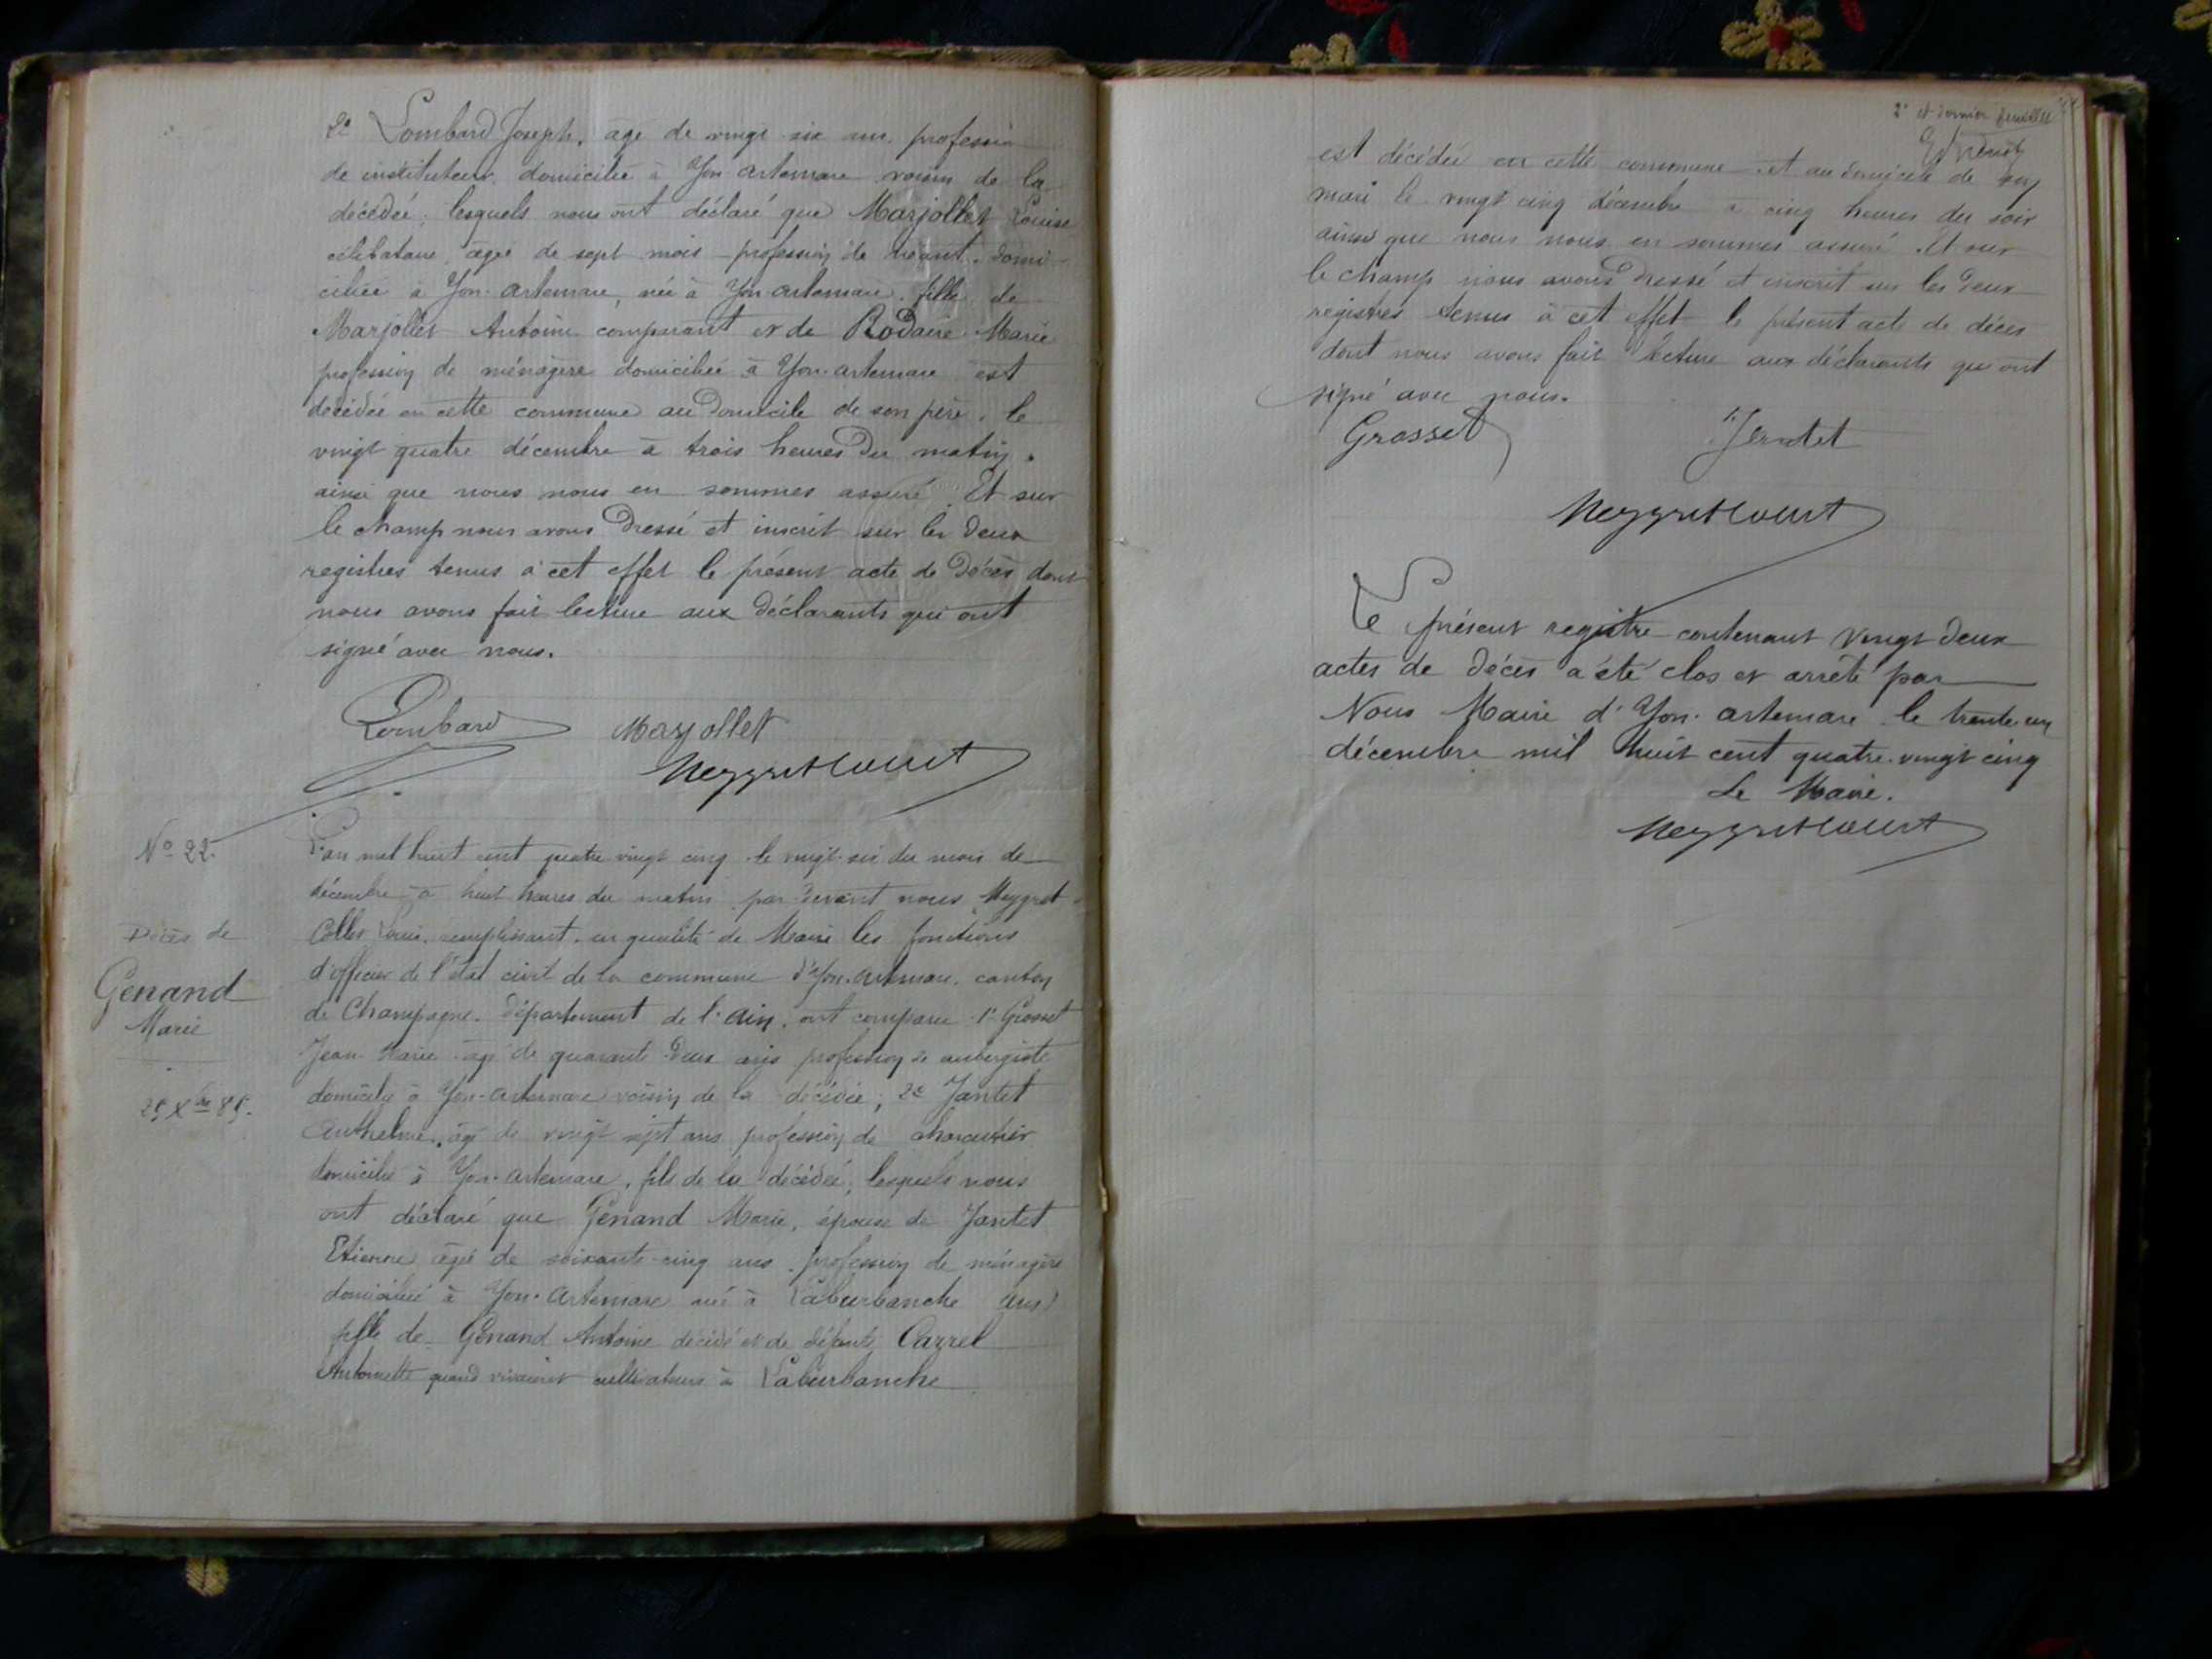 2e Lombard Joseph, âgé de vingt six ans, profession
de instituteur, domicilié à Yon-artemare voisin de la
décédée, lesquels nous ont déclaré que Marjollet Louise
célibataire, âgée de sept mois profession de néant. domi-
ciliée à Yon-artemare, née à Yon-artemare, fille de
Marjollet Antoine comparant et de Rodaire Marie
profession de ménagère domiciliée à Yon-artemare est
décédée en cette commune au domicile de son père, le
vingt quatre décembre à trois heures du matin.
ainsi que nous nous en sommes assuré. Et sur
le champ nous avons dressé et inscrit sur les deux
registres tenus à cet effet le présent acte de décès dont
nous avons fait lecture aux déclarants qui ont
signé avec nous.
Lombard Marjollet
No 22.
Décès de
Génand
Marie
25 Xbre 85.
L'an mil huit cent quatre vingt cinq le vingt-six du mois de
décembre à huit heures du matin par devant nous Meygret
Collet Louis, remplissant, en qualité de Maire les fonctions
d'officier de l'état civil de la commune d'Yon-artemare, canton
de Champagne. département de l'ain, ont comparu 1° Grosset
Jean-Marie âgé de quarante deux ans profession de aubergiste
domicilié à Yon-artemare voisin de la décédée; 2e Jantet
Anthelme, âgé de vingt sept ans profession de charcutier
domicilié à Yon-artemare, fils de la décédée, lesquels nous
ont déclaré que Génand Marie, épouse de Jantet
Etienne âgée de soixante-cinq ans, profession de ménagère
domiciliée à Yon-Artemare née à Laburbanche (ain)
fille de Génand Antoine décédé et de défunte Carrel
Antoinette quand vivaient cultivateurs à Laburbanche
2e et dernier feuillet
est décédée en cette commune et au domicile de son
mari le vingt cinq décembre à cinq heures du soir
ainsi que nous nous en sommes assuré. Et sur
le champ nous avons dressé et inscrit sur les deux
registres tenus à cet effet le présent acte de décès
dont nous avons fait lecture aux déclarants qui ont
signé avec nous.
Grosset Jentet
Le présent registre contenant vingt deux
actes de décès a été clos et arrêté par
Nous Maire d'Yon-artemare le trente un
décembre mil huit cent quatre-vingt cinq
Le Maire.